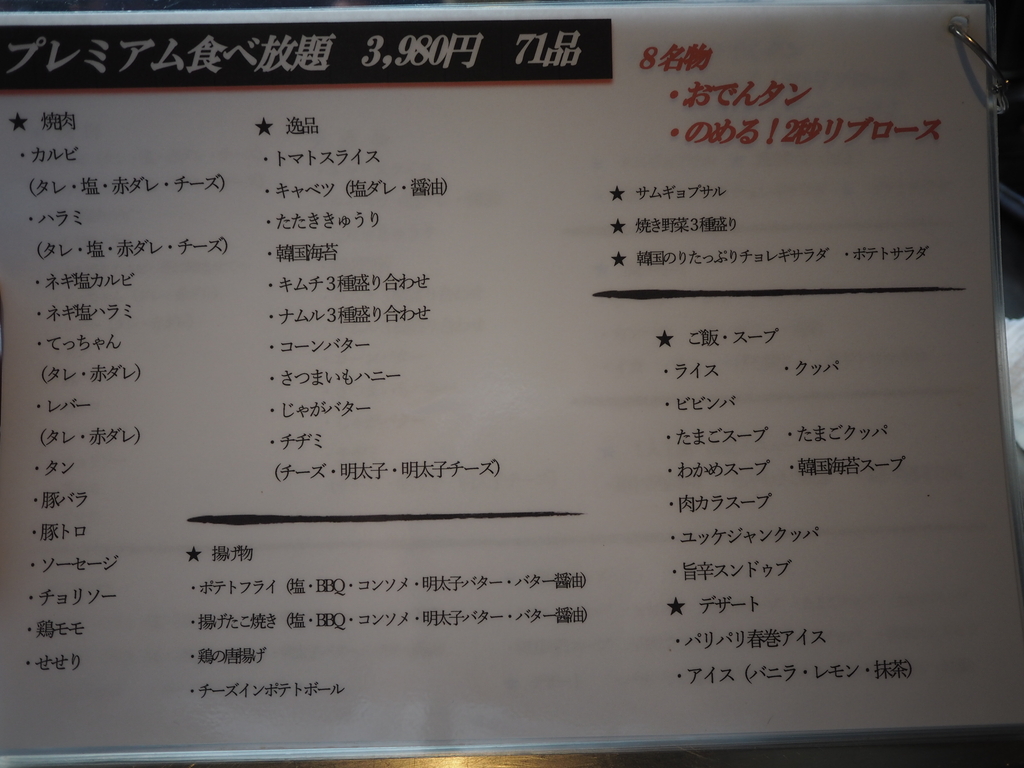 プレミアム食べ放題　3,980円　71品
★ 焼肉
・カルビ
（タレ・塩・赤ダレ・チーズ）
・ハラミ
（タレ・塩・赤ダレ・チーズ）
・ネギ塩カルビ
・ネギ塩ハラミ
・てっちゃん
（タレ・赤ダレ）
・レバー
（タレ・赤ダレ）
・タン
・豚バラ
・豚トロ
・ソーセージ
・チョリソー
・鶏モモ
・せせり
★ 逸品
・トマトスライス
・キャベツ（塩ダレ・醤油）
・たたききゅうり
・韓国海苔
・キムチ３種盛り合わせ
・ナムル３種盛り合わせ
・コーンバター
・さつまいもハニー
・じゃがバター
・チヂミ
（チーズ・明太子・明太子チーズ）
★ 揚げ物
・ポテトフライ（塩・BBQ・コンソメ・明太子バター・バター醤油）
・揚げたこ焼き（塩・BBQ・コンソメ・明太子バター・バター醤油）
・鶏の唐揚げ
・チーズインポテトボール
８名物
・おでんタン
・のめる！2秒リブロース
★ サムギョプサル
★ 焼き野菜３種盛り
★ 韓国のりたっぷりチョレギサラダ　・ポテトサラダ
★ ご飯・スープ
・ライス　・クッパ
・ビビンバ
・たまごスープ　・たまごクッパ
・わかめスープ　・韓国海苔スープ
・肉カラスープ
・ユッケジャンクッパ
・旨辛スンドゥブ
★ デザート
・パリパリ春巻アイス
・アイス（バニラ・レモン・抹茶）